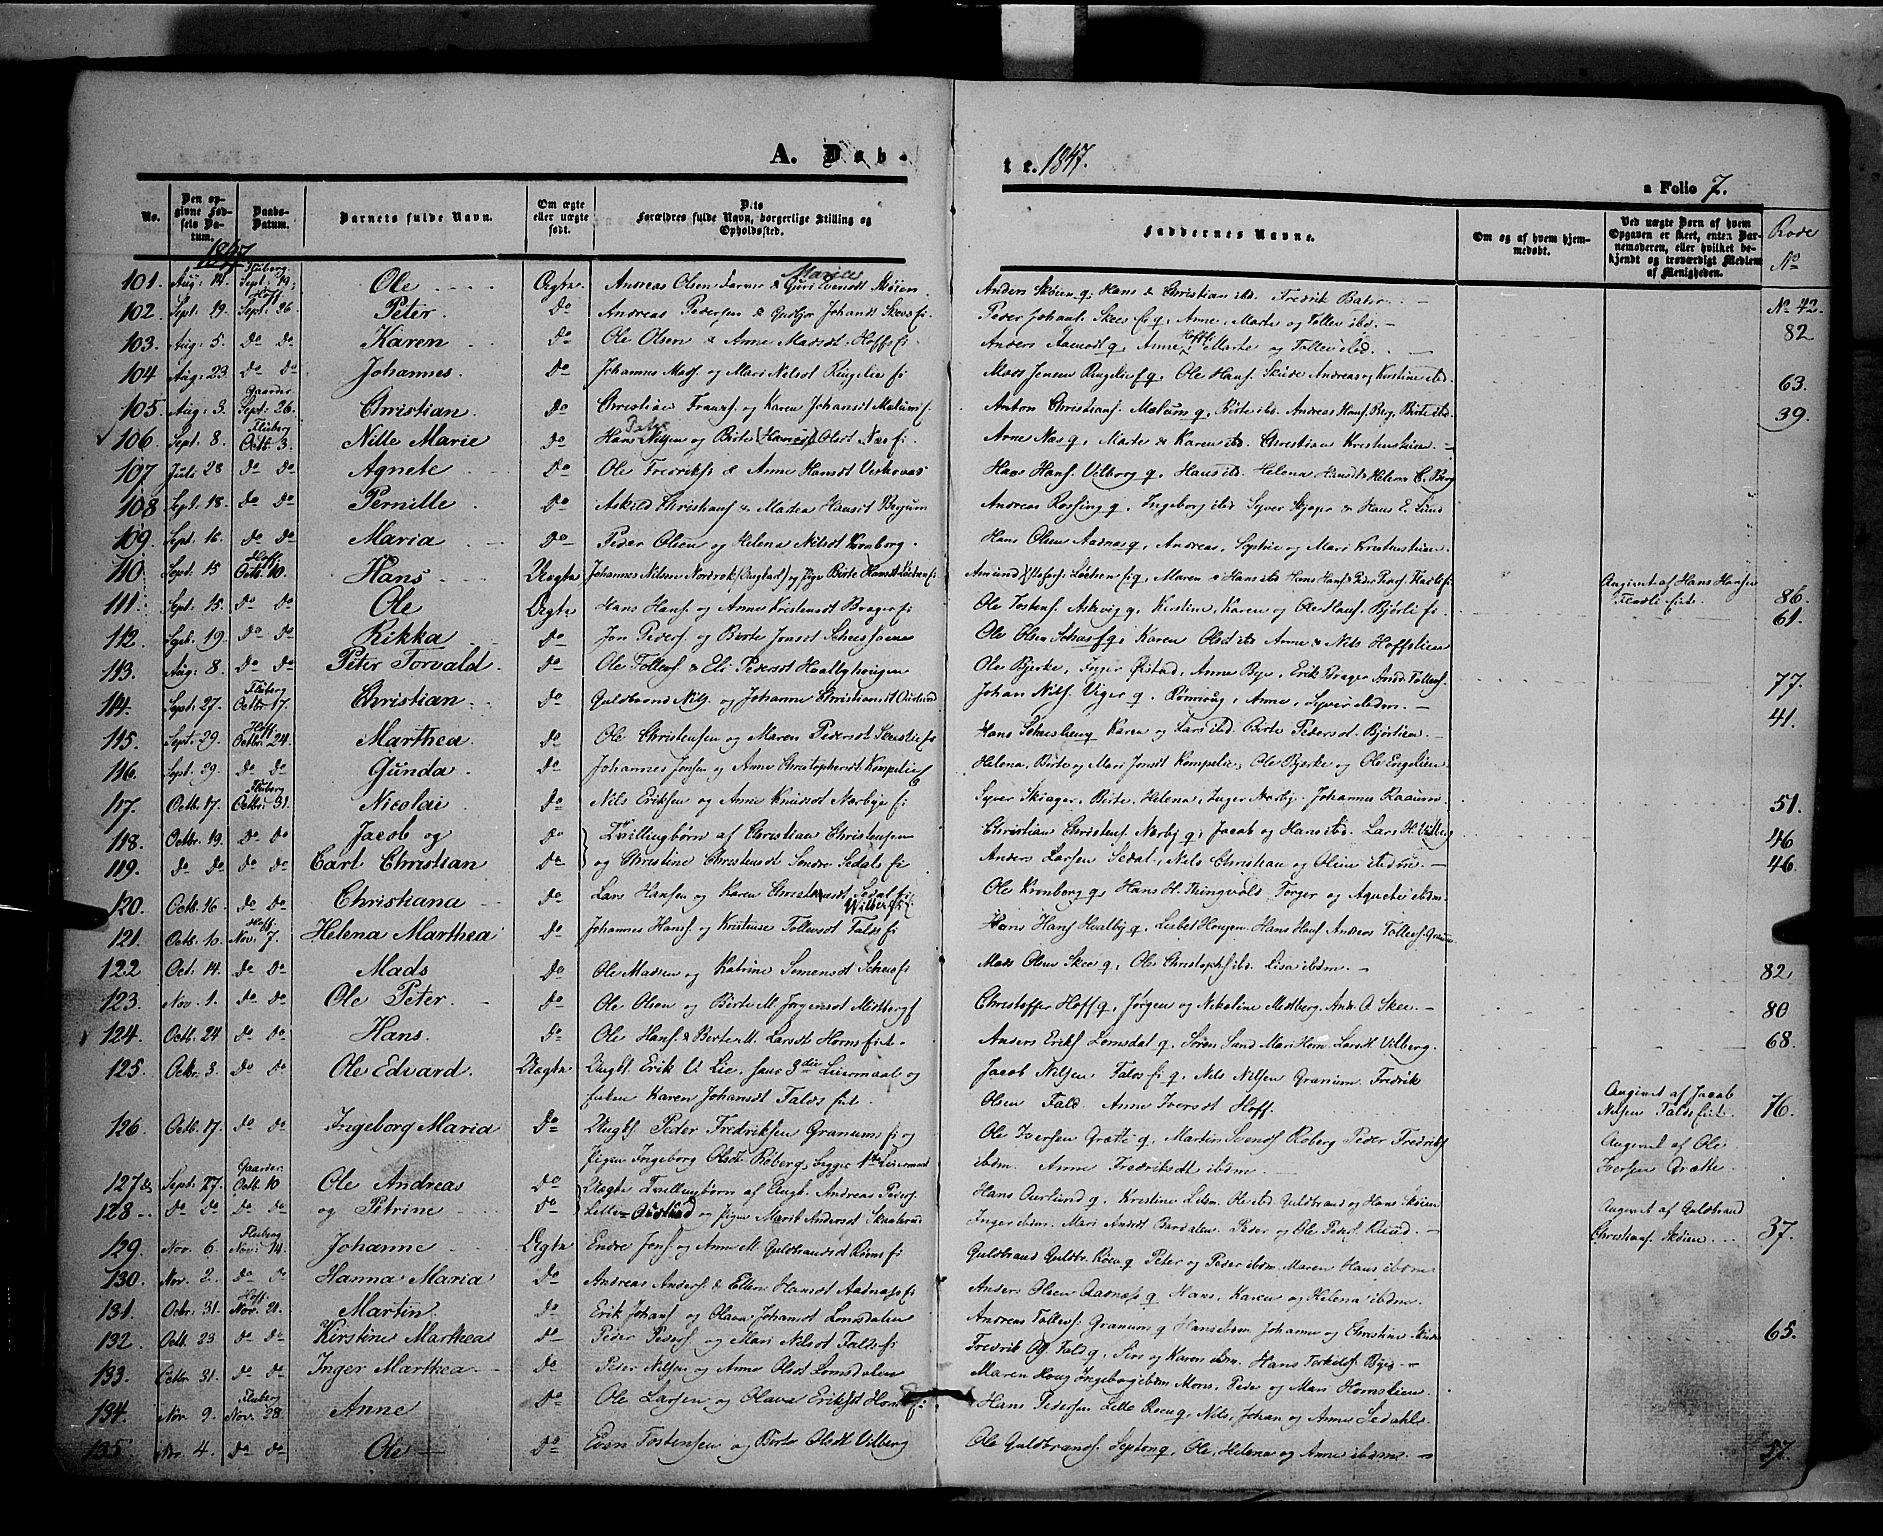 A. Døb-
te. 1847.
a Folio 7.
No.
Den opgivne Fødsels Datum.
Daabs-Datum.
Barnets fulde Navn.
Om ægte eller uægte født.
Dets Forældres fulde Navn, borgerlige Stilling og Opholdssted.
Faddernes Navne.
Om og af hvem hjemmedøbt.
Ved uægte Børn af hvem Opgaven er skeet, enten Barnemoderen, eller hvilket bekjendt og troværdigt Medlem af Menigheden.
Rode No
1847
101. Aug: 14. Fluberg Sept: 19. Ole Ægte Andreas Olsen & Marie Skøien Anders Skøien g, Hans & Christian ibd Fredrik
102. Sept. 19. Hoff Sept. 26. Peter. Do Andreas Pedersen & Johansd Skees fi. Peder Johans. Skee fi g, Anne, Marte og Tollev ibd. No 42.
103. Aug. 5. Do Do Karen Do Ole Olsen & Anne Madsdt. Hoffs fi. Anders g, Anne Hoffs Marte og Tollev ibd. 82
104 Aug: 23 Do Do Johannes. Do Johannes Mads. og Mari Nilsdt Ringelie fi Mads Jensen Ringelie fi g, Ole Hans. Skiøe Andreas og Kirstine ibd. 63.
105. Aug. 3. Gaarder Sept: 26. Christian. Do Christian Frants. og Karen Johansdt Mælum f. Anton Christians. Mælum g, Birte ibd. Andreas Hans. Berg, Birte ibd. 39.
106. Sept. 8. Fluberg Octb. 3. Nille Marie Do Hans Peter Nilsen og Birte (Hansdt) Olsdt Næs fi Arne Næs g, Marte & Karen ibd. Christian Kristenstuen
107. Juli 28 Do Do Agnete Do Ole Fredriks. & Anne Hansdt Hans Hans. Vilberg g, Hans ibd. Helena Hansdt Helena C. Berg
108 Sept. 18. Do Do Pernille Do Askild Christians. & Marthea Hansdt Bergum Andreas Rossing g, Ingeborg ibd Syver & Hans E. Lund
109. Sept. 16. Do Do Maria Do Peder Olsen og Helena Nilsdt Kronborg. Hans Olsen Aadnæs g, Andreas, Sophie og Mari Kristenstuen
110 Sept. 15 Hoff Octb. 10. Hans. Uægte Johannes Nilsen Nordrok (Ungkarl) og Pige Birte Hansdt Løchen fi Amund Løchen fi g, Maren & Hans ibd Hans Hans. & Peder Peders. Fladli fi Angivet af Hans Hansen Fladli eie. 86.
111. Sept. 15. Do Do Ole Ægte Hans Hans. og Anne Kristensdt Brager fi Ole Tostens. Askvig g, Kirstine, Karen og Ole Hans. Bjørli fi. 61.
112. Sept. 19. Do Do Rikka Do Jon Peders. og Birte Jonsdt Ole Olsen g, Karen Olsdt ibd Anne & Nils Hoffslien
113. Aug: 8. Do Do Peter Torvald. Do Ole Tollevs. & Eli Pedersdt Hvalbyhougen Ole Bjerke, Inger Øistad, Anne Bye, Erik Brager And. Tollevs. 77.
114. Sept. 27. Fluberg Octbr 17. Christian Do Guldbrand Nils. og Johanne Christiansdt Aurlund Johan Nils. Viger g, Rønnoug, Anne, Syver ibdm. 41.
115. Sept. 29. Hoff Octbr. 24. Marthea. Do Ole Christensen og Maren Pedersdt Hans g Karen og Lars ibd. Birte Pedersdt. Bjørlien.
116. Sept. 29. Do Do Gunda. Do Johannes Jensen og Anne Christophersdt Kompelie f Helena, Birte og Mari Jonsdt Kompelie, Ole Bjerke og Ole Engelien
117. Octb. 17. Fluberg Octbr: 31. Nicolai Do Nils Eriksen og Anne Knudsdt Nørbye fi Syver Skiager, Birte, Helena, Inger Nørby, Johannes Raaum 51.
118. Octbr. 19. Do Do Jacob og Do Tvillingbørn af Christian Christensen Christian Christens. Nørby g, Jacob og Hans ibd. Lars H. Vilberg 46
119. Do Do Do Do Carl Christian Do og Christine Christensdt Søndre Sedals fi Anders Larsen Sedal, Nils Christian og Oline ibdm. 46.
120. Octb. 16. Do Do Christiana Do Lars Hansen og Karen Christensdt Vilber fi Ole Kronberg g, Hans H. Thingvold Torger og Agnete ibdm.
121. Octb. 10. Hoff Nov. 7. Helena Marthea Do Johannes Hans. og Kristense Tollevsdt Falds fi Hans Hans Hvalby g, Lisbet Hougen, Hans Hans. Anders Tollevs. Granum
122 Oct. 14. Do Do Mads Do Ole Madsen og Katrine Simensdt Mads Olsen Skee g, Ole Christophs. ibd. Lisa ibdm. 82.
123. Nov. 1. Do Do Ole Peter. Do Ole Olsen og Birte M. Jørgensdt Midtberg f Christoffer Hoff g, Jørgen og Nikoline Midtberg, And. O. Skee. 80
124. Octb. 24 Do Do Hans. Do Ole Hans. & Berte M. Larsdt Horns eie. Anders Eriks Lomsdal g, Søren Sand Mari Horn Lars H. Vilberg. 68.
125. Octbr. 3. Do Do Ole Edvard. Uægte Ungk. Erik O. Lie, hans 3die Leiermaal og Jacob Nilsen Falds fi g, Nils Nilsen Granum Fredrik
Enken Karen Johansdt Falds eie. Olsen Fald. Anne Iversdt Hoff. Angivet af Jacob Nilsen Falds eie. 76.
126. Octb. 17. Do Do Ingeborg Maria Do Ungk. Peder Fredriksen Granums fi og Ole Iversen Grøtte g, Martin Svends. Roberg Peder Fredriks.
Pigen Ingeborg Olsdt Roberg, begges 1ste Leiermaal ibdm. Anne Fredriksdt ibdm. Angivet af Ole Iversen Grøtte.
127 & Sept. 27. Gaarder Octb. 10 Ole Andreas Do Uægte Tvillingbørn af Ungk. Andreas Peders. Hans Aurlund g, Kristine ibdm. Ole ibd Guldbrand og Hans Skøien
128. Do Do Do Do og Petrine Do Lille Aurlund og Pigen Marit Andersdt Inger ibdm. Mari Andsdt Bardalen. Peder og Ole Peders. Ruud. Angivet af Guldbrand Christians. Skøien 37.
129. Nov. 6. Fluberg Nov: 14. Johanne Ægte Endre Jons. og Anne M. Guldbrandsdt Røens fi Guldbrand Guldbr. Røen g Peter og Peder ibdm. Maren Hans ibdm.
130. Nov. 2. Do Do Hanna Maria Do Andreas Anders. & Ellen Hansdt Aadnæs fi Anders Olsen Aadnæs g, Hans, Karen og Helena ibdm.
131. Octbr. 31. Hoff. Nov. 21. Martin. Do Erik Johans. og Olava Johansdt Lomsdalen Andreas Tollevs. Granum g Hans ibdm. Johanne og Christine
132. Octb 23 Do Do Kirstine Marthea Do Peder Peders. og Mari Nilsdt Falds fi Fredrik O. Fald g, Siri og Karen ibdm. Hans Torkilds. Bye 65.
133. Octbr. 31. Do Do Inger Marthea. Do Peder Nilsen og Anne Olsdt Lomsdalen Maren Houg Ingeborg ibdm Mons, Peder og Mari Hornslien.
134. Nov. 9. Fluberg Nov. 28. Anne Do Ole Larsen og Olava Eriksdt Horns fi Hans Pedersen Lille Røen g, Nils, Johan og Anne Sedahl.
135. Nv. 4. Do Do Ole Do Even Tostensen og Birte Olsdt Vilberg Ole Guldbrands. g, Ole, Helena og Anne ibdm. 57.